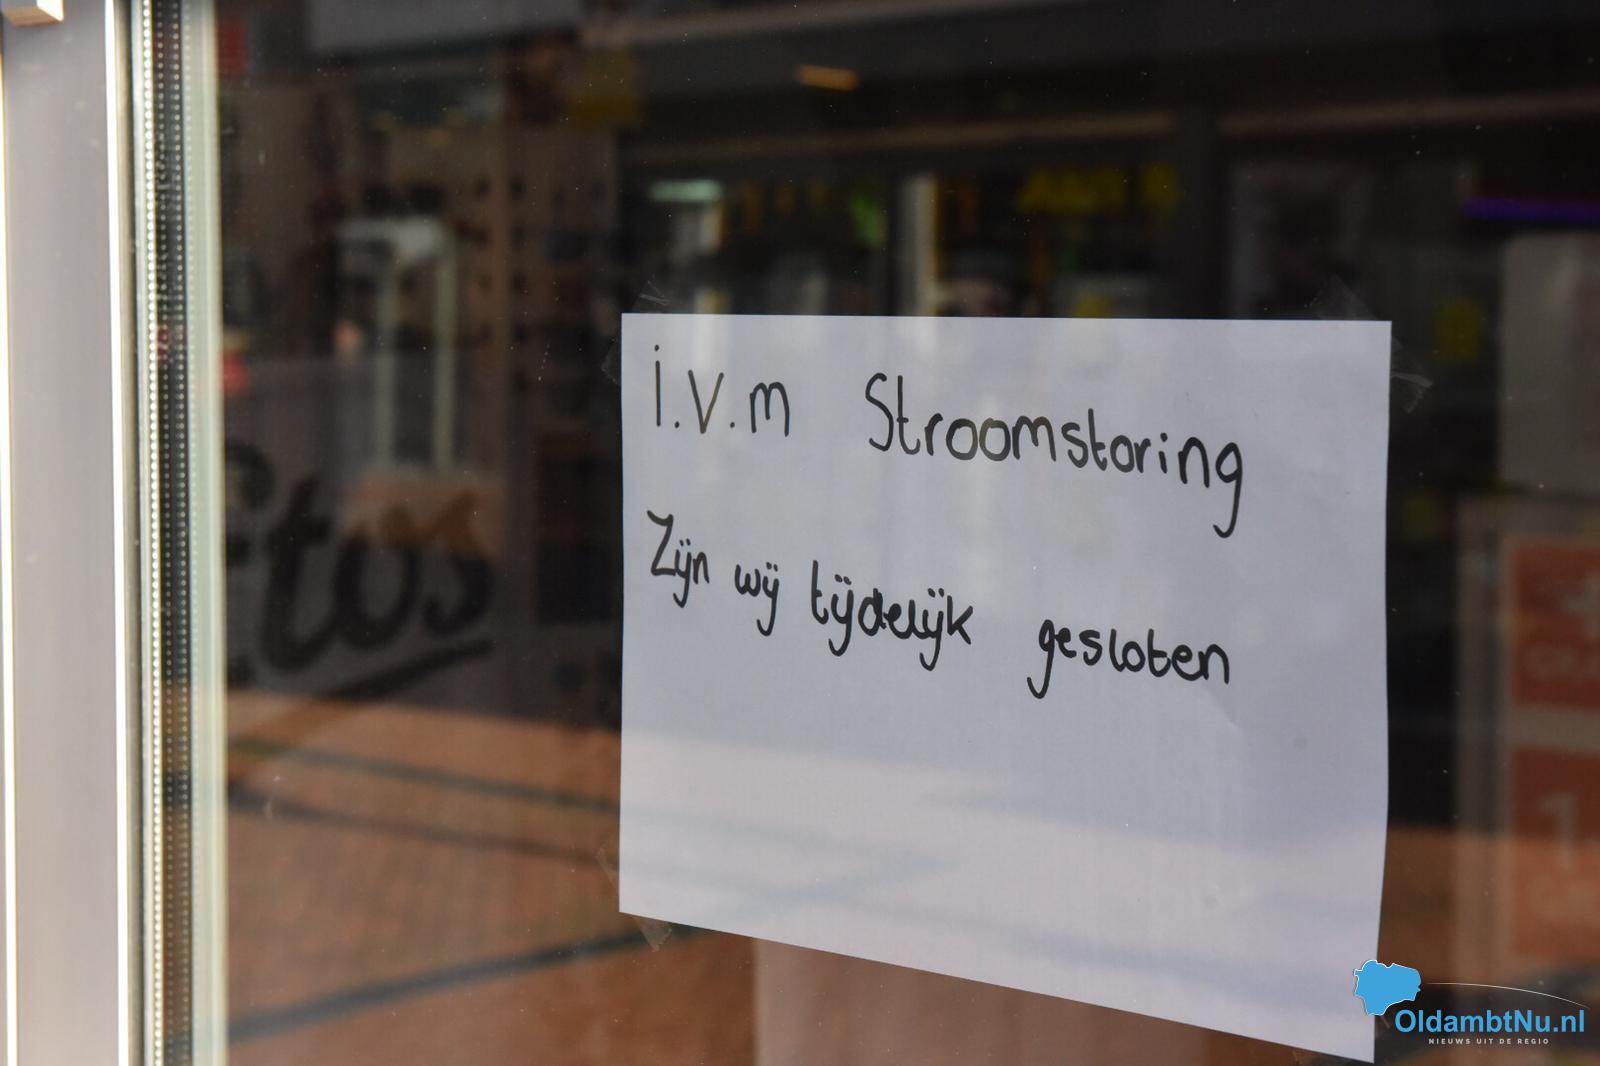 i.v.m Stroomstoring
Zijn wij tijdelijk gesloten
etos
OldambtNu.nl
NIEUWS UIT DE REGIO